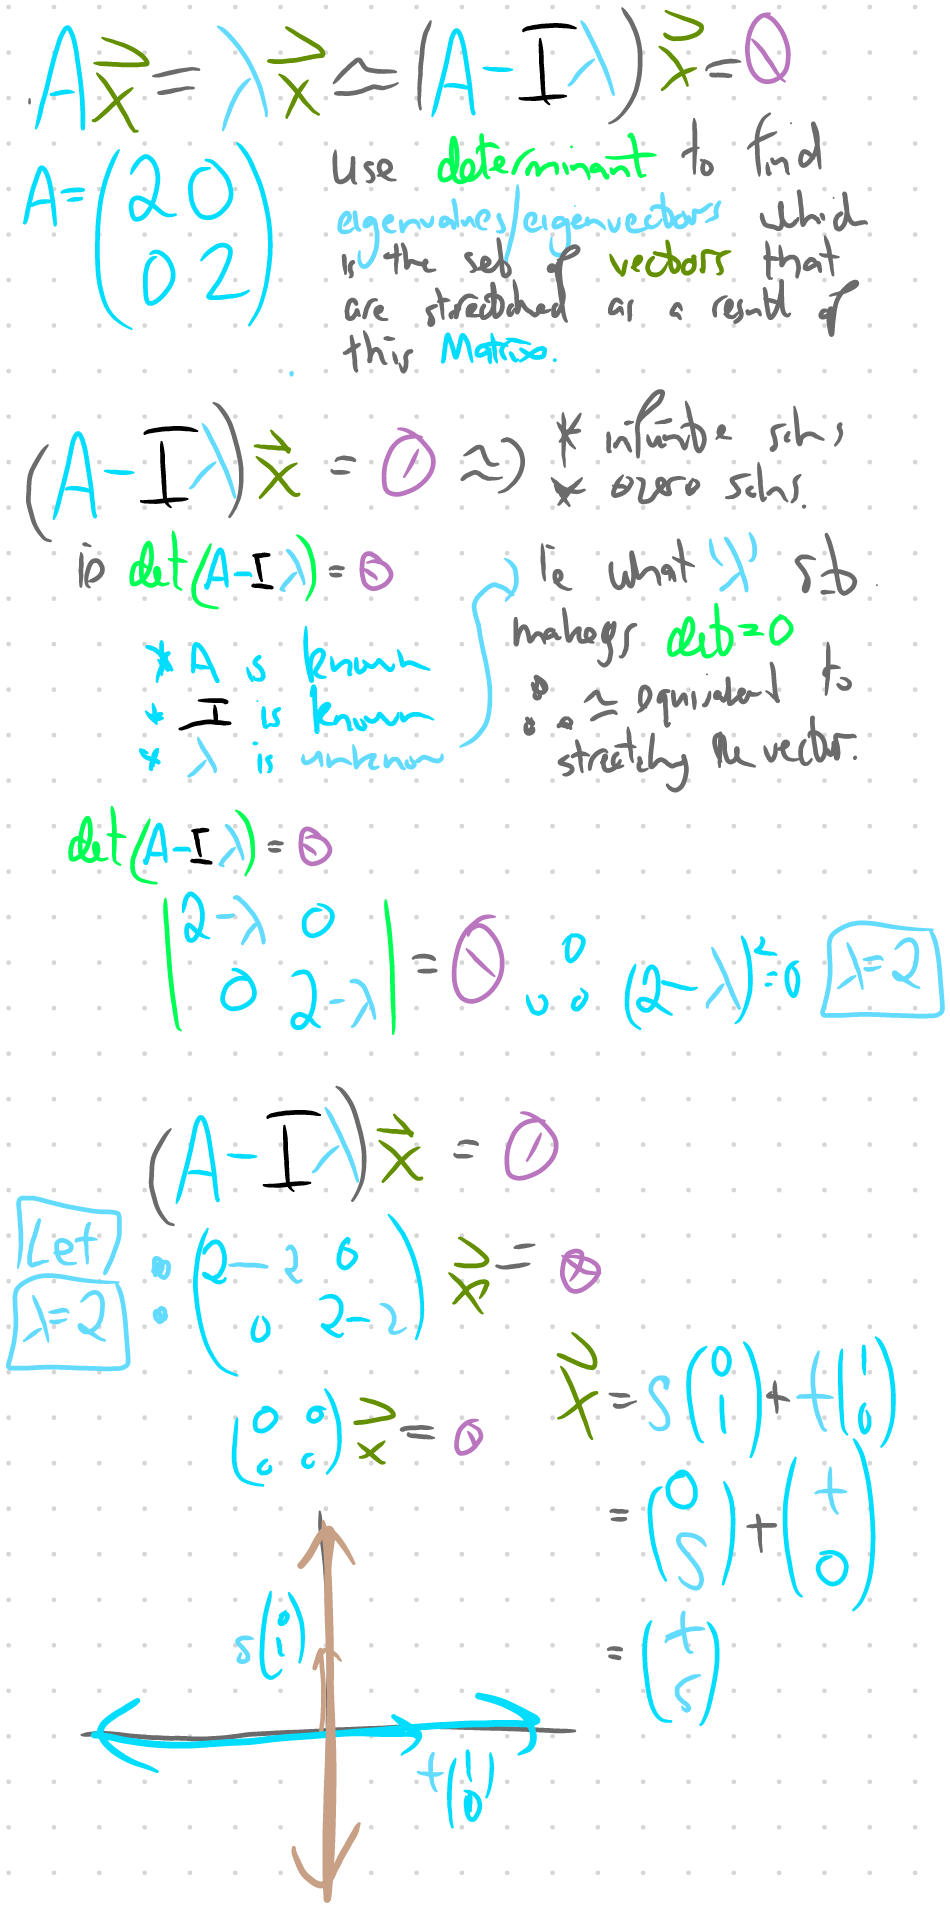 A x⃗ = λ x⃗ ≃ (A - I λ) x⃗ = 0
A = (2 0
0 2)
use determinant to find
eigenvalues/eigenvectors which
is the set of vectors that
are stretched as a result of
this Matrix.
(A - I λ) x⃗ = 0 ≃) * infinite solns
* zero solns.
ie det(A - I λ) = 0
* A is known
* I is known
* λ is unknown
Ie what 'λ'
makes det = 0
∴ ≃ equivalent to
stretching the vector.
det(A - I λ) = 0
|2-λ 0
0 2-λ| = 0 ∴ (2-λ)² = 0 λ=2
(A - I λ) x⃗ = 0
Let
λ=2
: (2-2 0
0 2-2) x⃗ = 0
(0 0
0 0) x⃗ = 0
x⃗ = s(0 1) + t(1 0)
= (0 s) + (t 0)
= (t s)
s(0 1)
t(1 0)